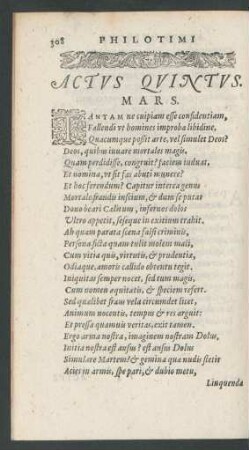 308 PHILOTIMI
ACTVS QVINTVS.
MARS.
TANTAM ne cuipiam esse confidentiam,
Fallendi vt homines improba libidine,
Quacumque possit arte, vel simulet Deos?
Deos, quibus iuuare mortales magis,
Quam perdidisse, congruit? faciem induat,
Et nomina, vt sit fas abuti munere?
Et hoc ferendum? Capitur interea genus
Mortale fraudis inscium, & dum se putat
Dono beari Cælitum, inferno dolo
Vltro appetit, seseque in exitium trahit.
Ab quam parata scena falsi criminis,
Persona ficta quam tulit molem mali,
Cum vitia quis, virtutis, & prudentia,
Odiaque, amoris callido obtentu tegit.
Iniquitas semper nocet, sed tum magis,
Cum nomen æquitatis, & speciem refert.
Sed qualibet fraus vela circumdet licet,
Animum nocentis, tempus & res arguit:
Et pressa quamuis veritas, exit tamen.
Ergo arma nostra, imaginem nostram Dolus,
Initia nostra est ausus? est ausus Dolus
Simulare Martem? & gemina qua nudis stetit
Acies in armis, spe pari, & dubio metu,
Linquenda